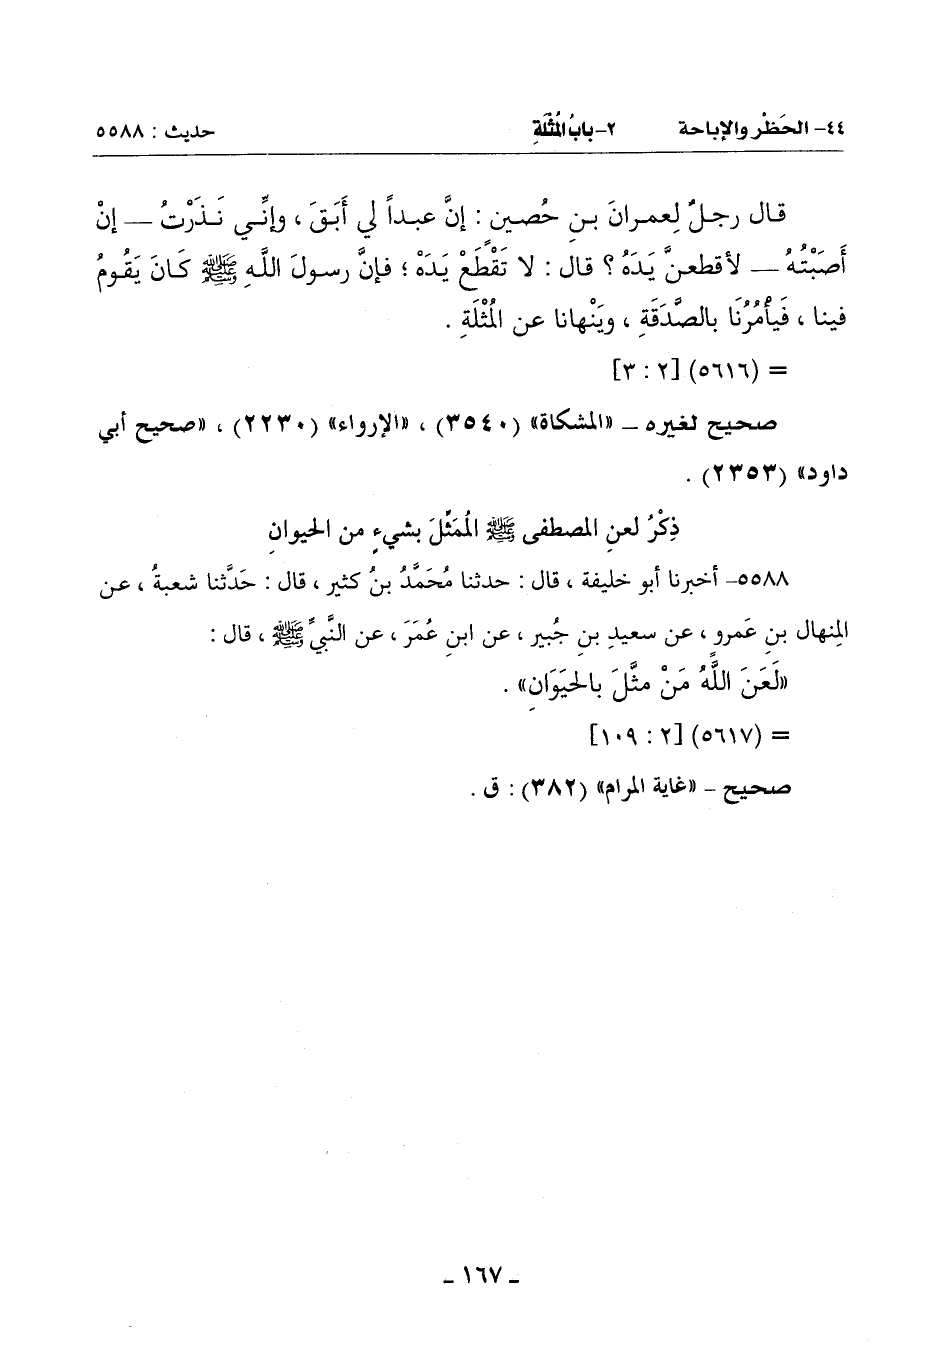 ٤٤- الحَظْر والإباحة ٢-بابُ المُثْلَةِ حديث : ٥٥٨٨
قال رجلٌ لِعمرانَ بنِ حُصينٍ : إنَّ عبداً لي أَبَقَ ، وإنِّي نَذَرْتُ — إنْ
أَصَبْتُهُ — لأقطعنَّ يَدَهُ ؟ قال : لا تَقْطَعْ يَدَهْ ؛ فإنَّ رسولَ اللَّهِ ﷺ كَانَ يَقُومُ
فينا ، فَيأْمُرُنَا بالصَّدَقَةِ ، ويَنْهانا عن المُثْلَةِ .
= (٥٦١٦) [٢ : ٣]
صحيح لغيره – «المشكاة» (٣٥٤٠) ، «الإرواء» (٢٢٣٠) ، «صحيح أبي
داود» (٢٣٥٣) .
ذِكْرُ لعنِ المصطفى ﷺ المُمَثِّلَ بشيءٍ من الحيوانِ
٥٥٨٨- أخبرنا أبو خليفة ، قال : حدثنا مُحَمَّدُ بنُ كثير ، قال : حَدَّثنا شعبةُ ، عن
المِنهال بنِ عَمرٍو ، عن سعيدِ بنِ جُبير ، عن ابنِ عُمَرَ ، عن النَّبيِّ ﷺ ، قال :
«لَعَنَ اللَّهُ مَنْ مثَّلَ بالحَيَوَانِ» .
= (٥٦١٧) [٢ : ١٠٩]
صحيح – «غاية المرام» (٣٨٢) : ق .
– ١٦٧ –